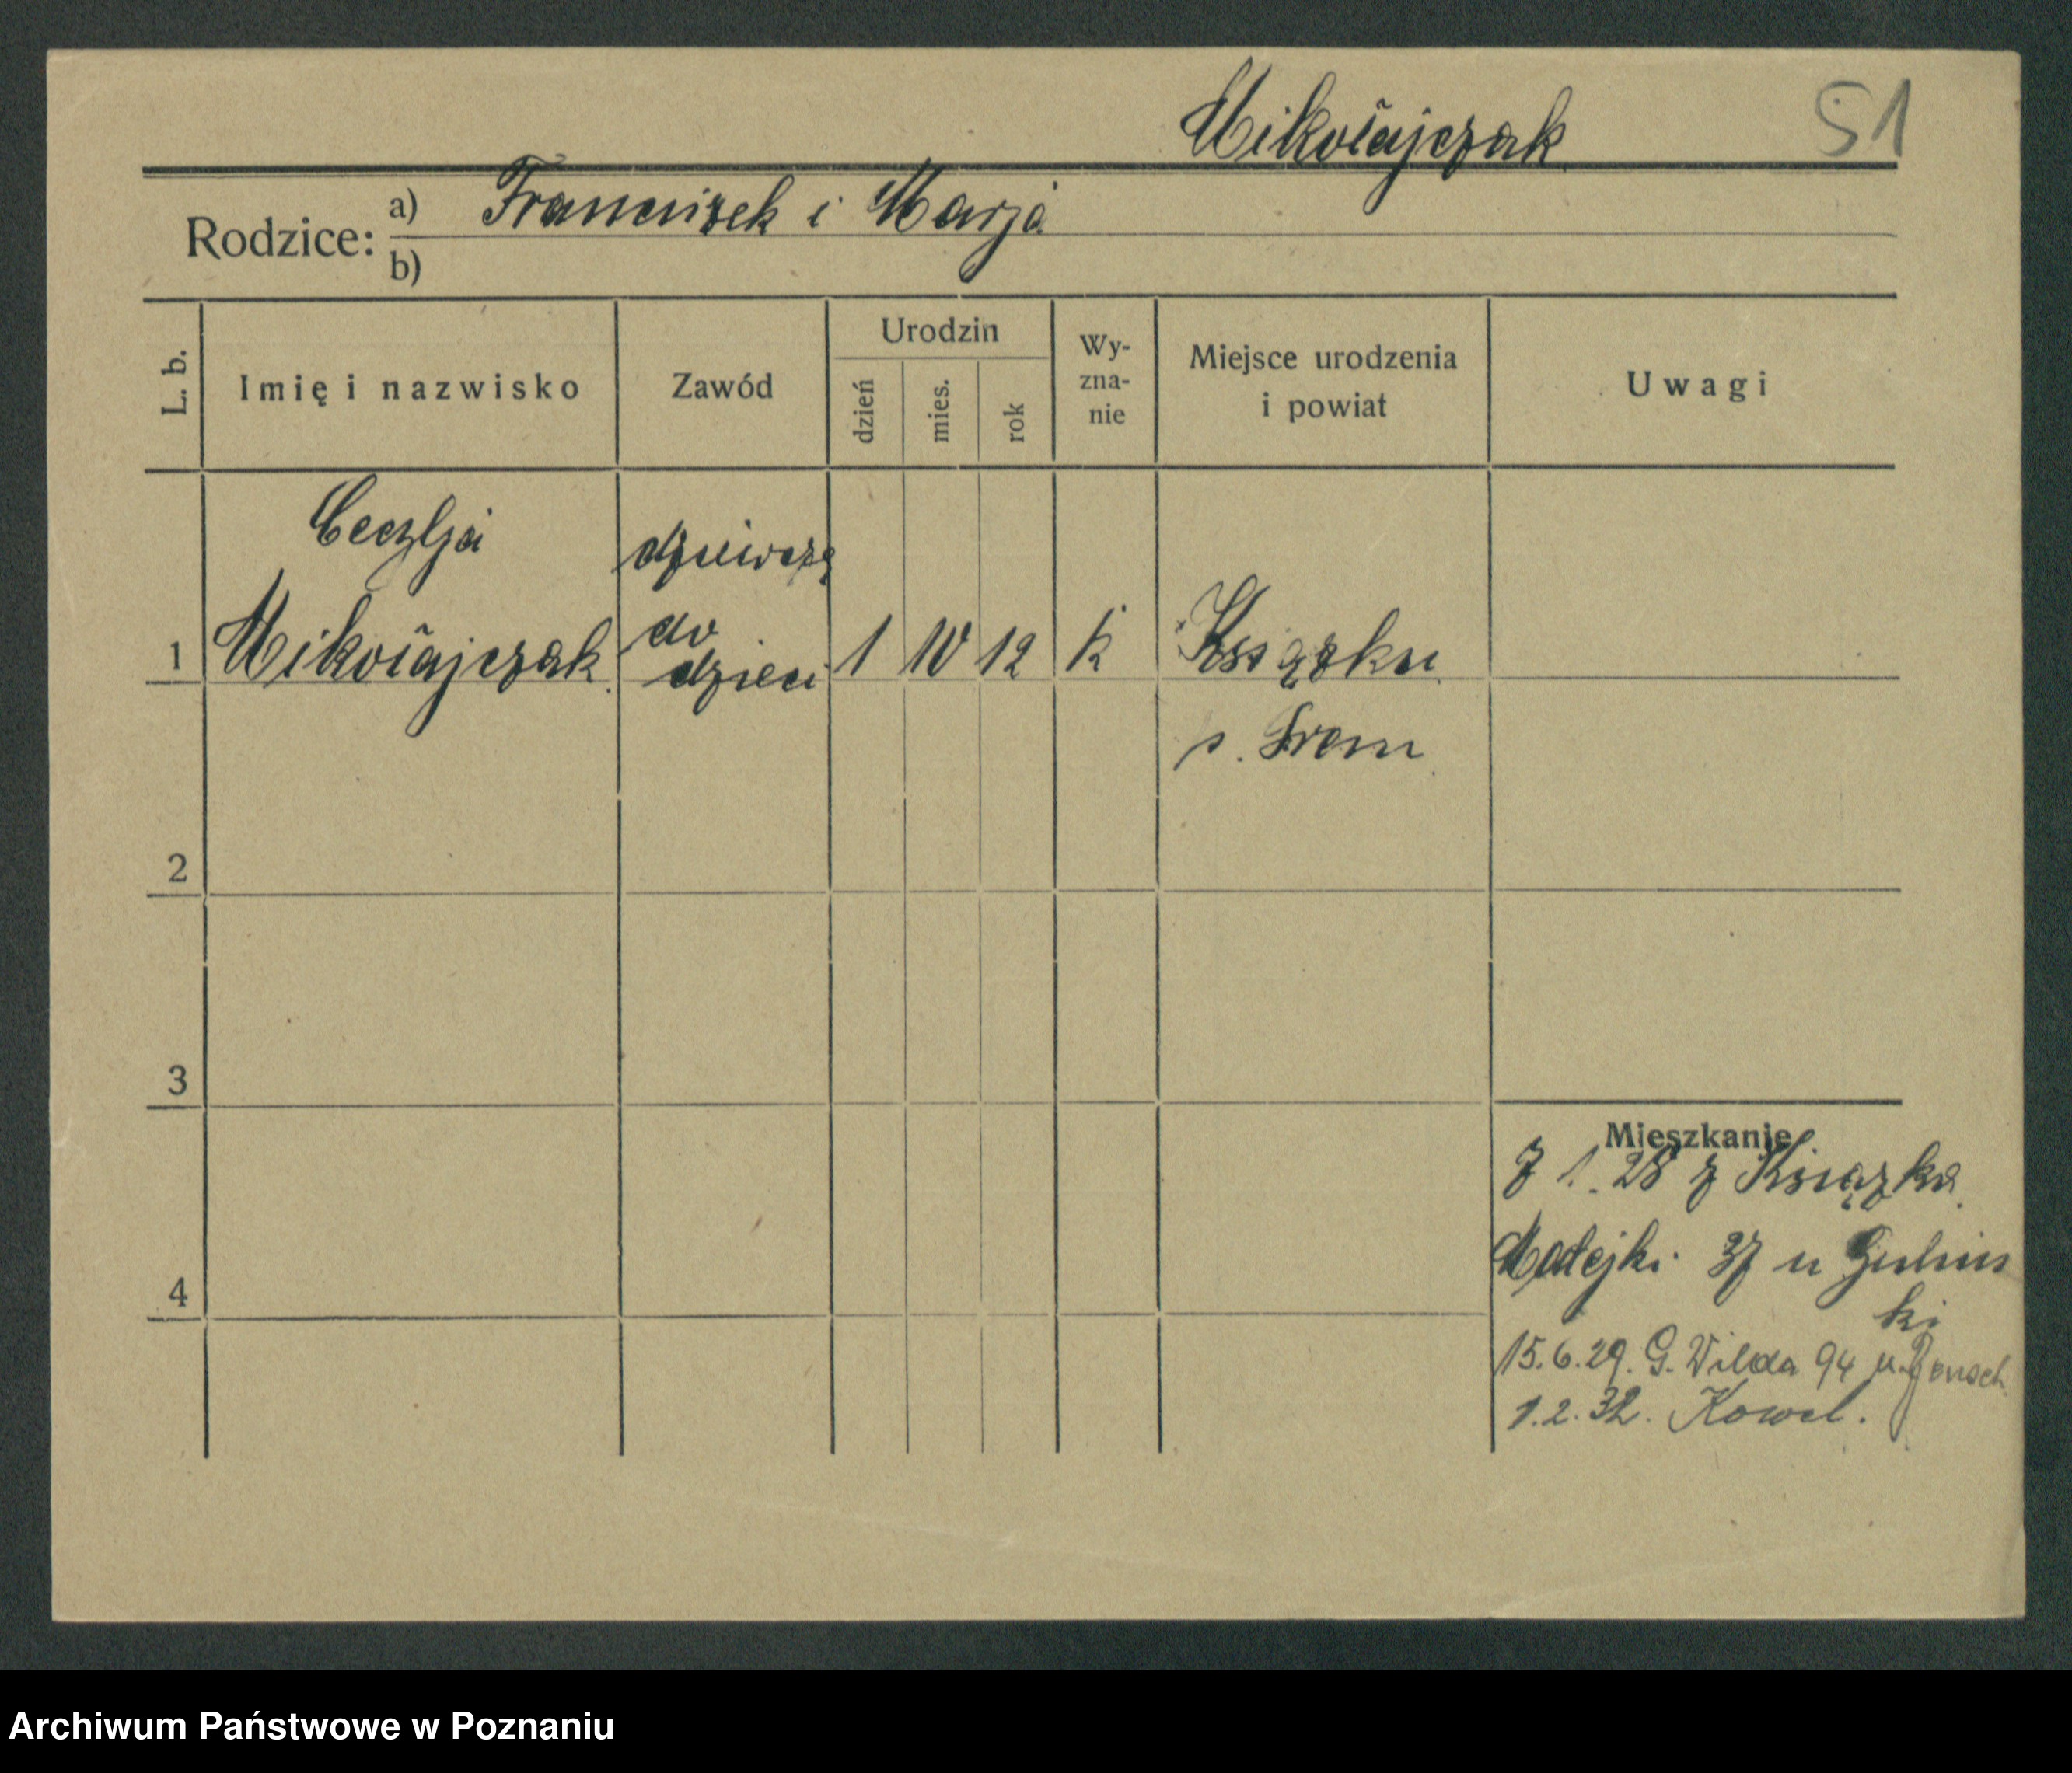 Mikołajczak 51
Rodzice: a) Franciszek i Marja
b)
L. b. Imię i nazwisko Zawód Urodzin dzień mies. rok Wy-zna-nie Miejsce urodzenia i powiat Uwagi
Cecylja dziewczę
1 Mikołajczak do dzieci 1 10 12 k Książku
p. Śrem
2
3
Mieszkanie
7 1. 28 z Książka
Matejki 37 u
4
ki
15.6.29. G. Wilda 94 u.
1.2.32. Kowel.
Archiwum Państwowe w Poznaniu